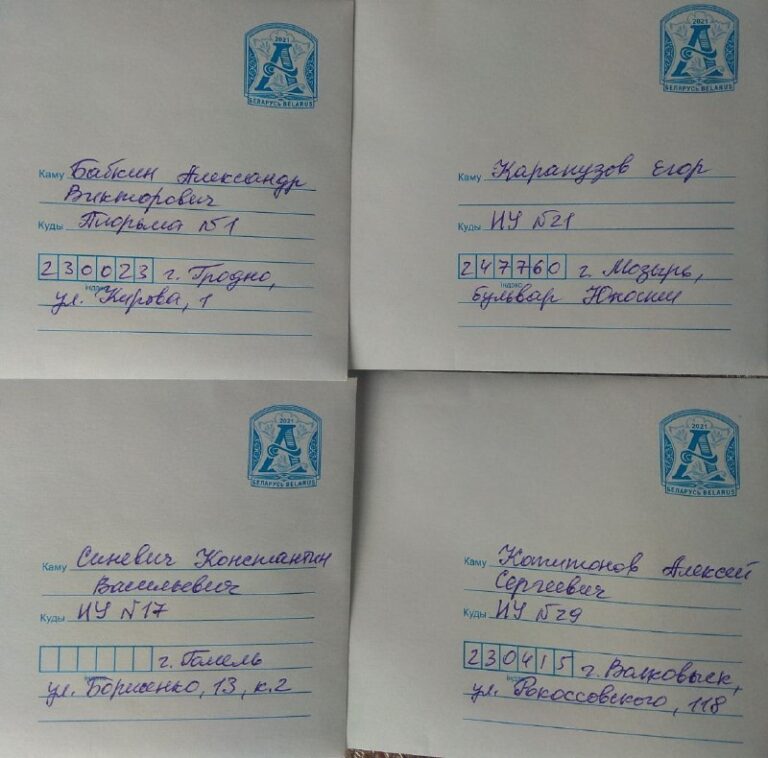 2021
А
БЕЛАРУСЬ BELARUS
Каму Бабкин Александр
Викторович
Куды Тюрьма №1
230023 г. Гродно,
Індэкс
ул. Кирова, 1
2021
А
БЕЛАРУСЬ BELARUS
Каму Каранузов Егор
Куды ИУ №21
247760 г. Мозырь,
Індэкс
бульвар Юности
2021
А
БЕЛАРУСЬ BELARUS
Каму Синевич Константин
Васильевич
Куды ИУ №17
г. Гомель
ул. Борисенко, 13, к.2
2021
А
БЕЛАРУСЬ BELARUS
Каму Капитонов Алексей
Сергеевич
Куды ИУ №29
230415 г. Волковыск,
Індэкс
ул. Рокоссовского, 118